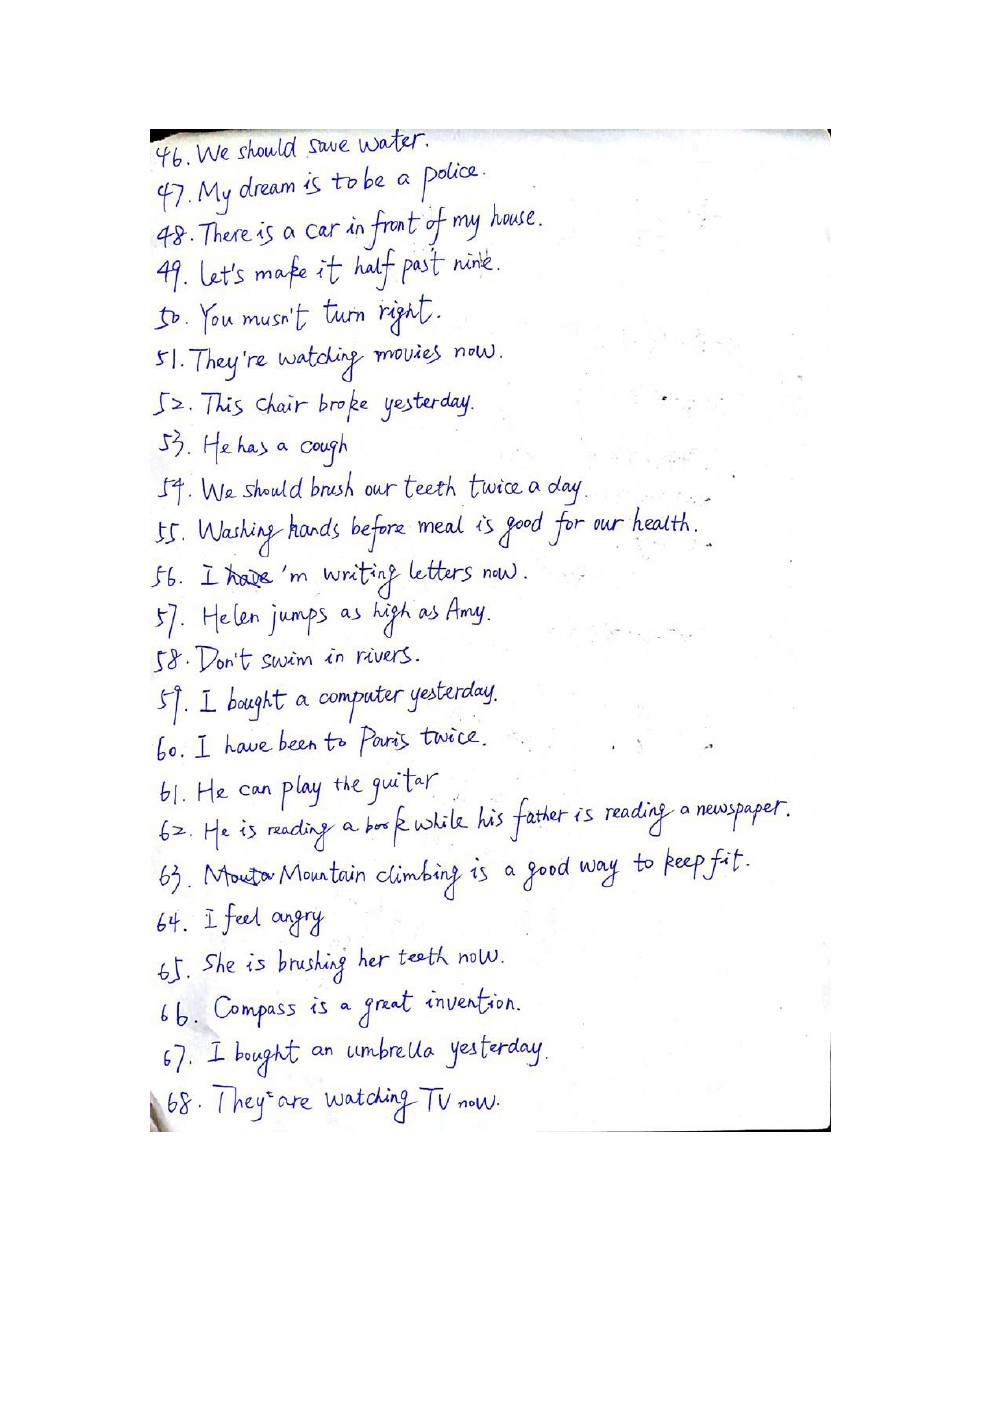 46. We should save water.
47. My dream is to be a police.
48. There is a car in front of my house.
49. Let's make it half past nine.
50. You musn't turn right.
51. They're watching movies now.
52. This chair broke yesterday.
53. He has a cough
54. We should brush our teeth twice a day.
55. Washing hands before meal is good for our health.
56. I have 'm writing letters now.
57. Helen jumps as high as Amy.
58. Don't swim in rivers.
59. I bought a computer yesterday.
60. I have been to Paris twice.
61. He can play the guitar
62. He is reading a book while his father is reading a newspaper.
63. Mountain climbing is a good way to keep fit.
64. I feel angry
65. She is brushing her teeth now.
66. Compass is a great invention.
67. I bought an umbrella yesterday.
68. They are watching TV now.